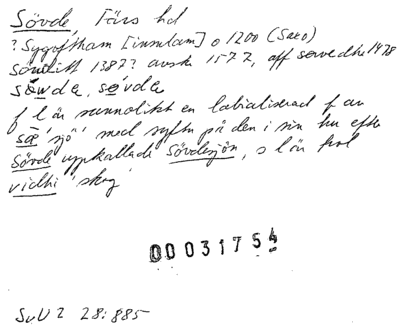 Sövde, Färs hd
? Sygoftham [insulam] o 1200 (Saxo)
Sömitt 1387? avskr 1577, aff søvedhe 1478
sǿwdə, sevdə
f l är sannolikt en labialiserad f av
sǣ 'sjö' med syftn på den i sin tur efter
Sövde uppkallade Sövdesjön, s l är trol
vidhi 'skog'
00031754
SvU 2 28:885